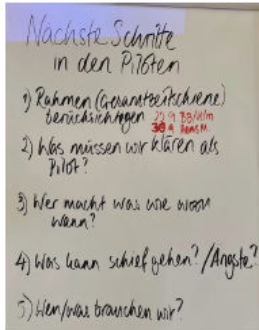 Nächste Schritte
in den Piloten
1) Rahmen (Gesamtzeitschiene)
berücksichtigen 29.9. BB/Ulm
30.9. HansM.
2) Was müssen wir klären als
Pilot?
3) Wer macht was wie wann?
4) Was kann schief gehen? / Ängste?
5) Wen/was brauchen wir?